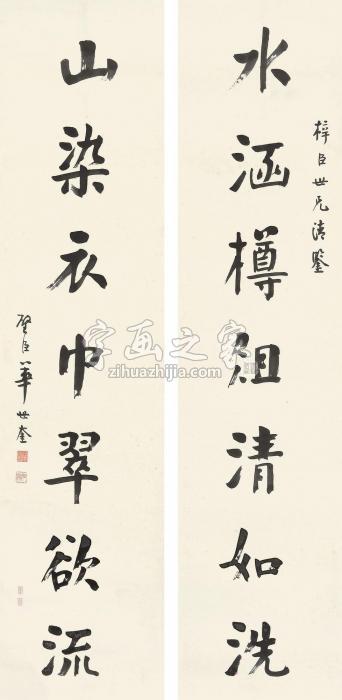 梓臣世兄清鉴
水涵樽俎清如洗
山染衣巾翠欲流
璧臣華世奎
字画之家
zihuazhijia.com